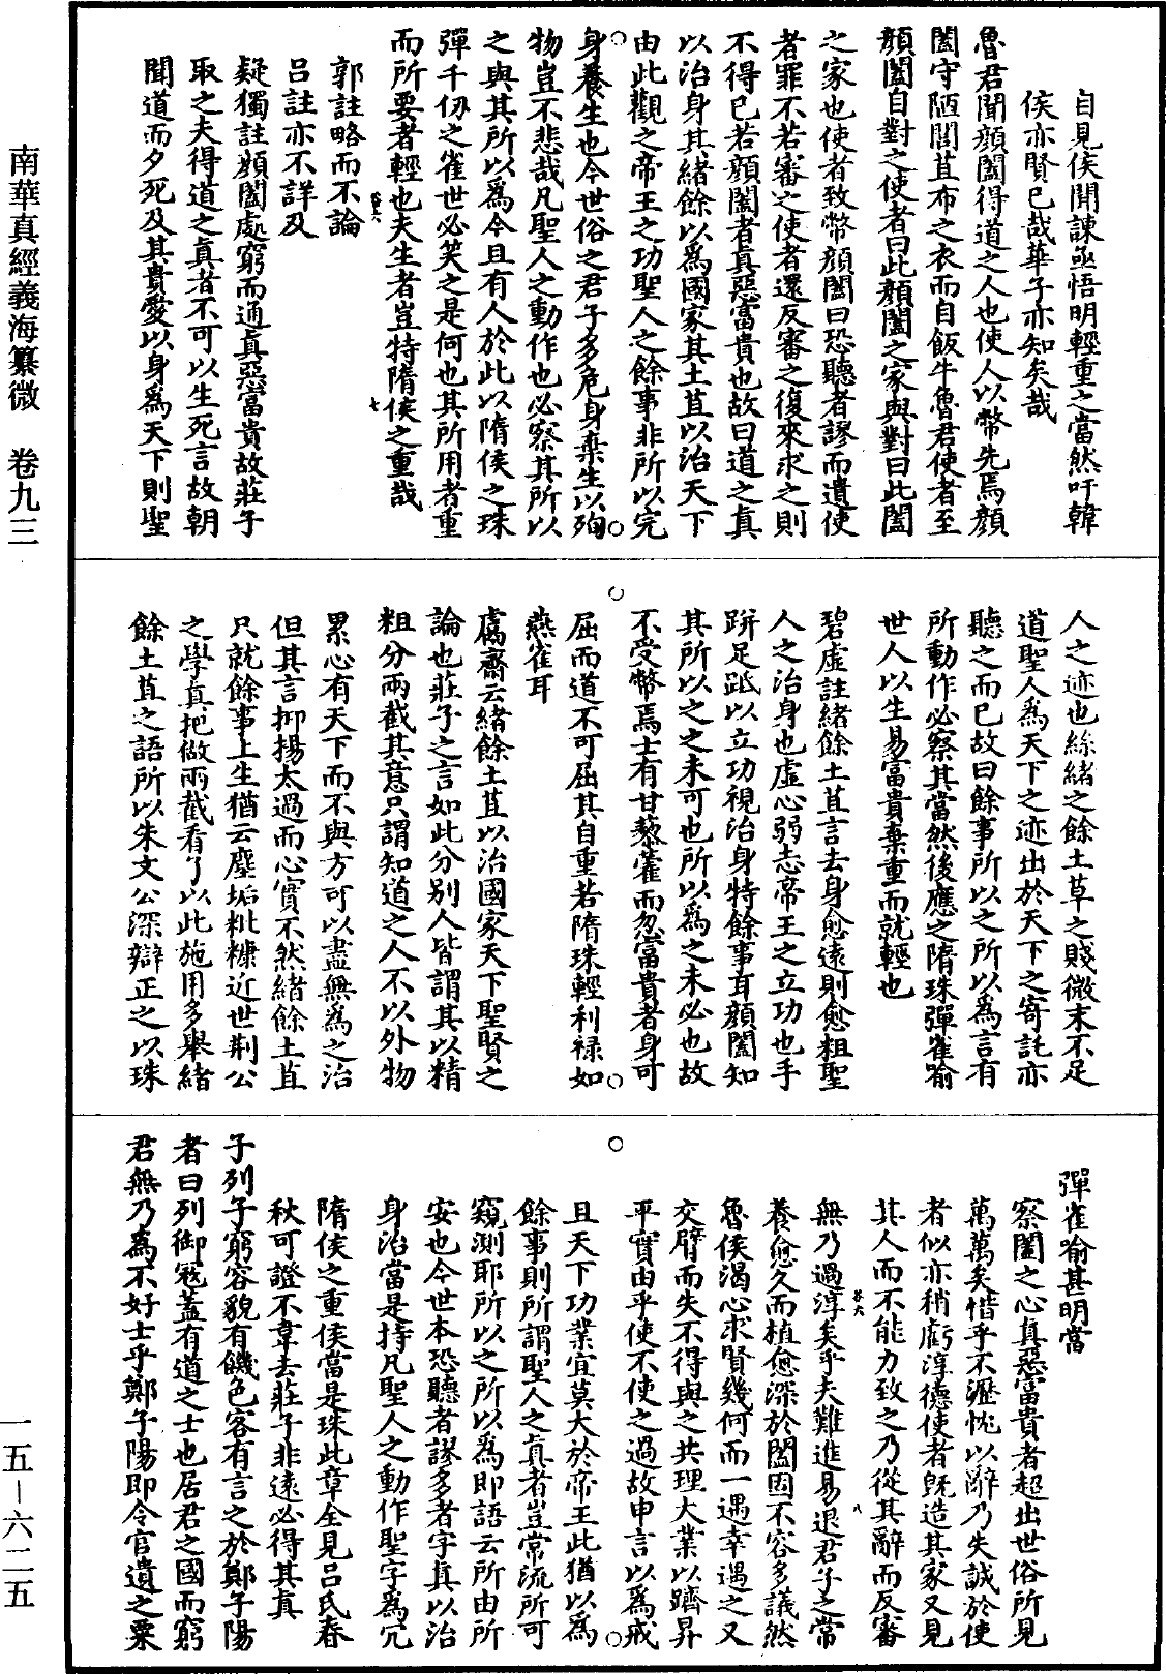 自見侯聞諫亟悟明輕重之當然吁韓
侯亦賢已哉華子亦知矣哉
魯君聞顏闔得道之人也使人以幣先焉顏
闔守陋閭苴布之衣而自飯牛魯君使者至
顏闔自對之使者曰此顏闔之家與對曰此闔
之家也使者致幣顏闔曰恐聽者謬而遺使
者罪不若審之使者還反審之復來求之則
不得已若顏闔者真惡富貴也故曰道之真
以治身其緒餘以爲國家其土苴以治天下
由此觀之帝王之功聖人之餘事非所以完
身養生也今世俗之君子多危身棄生以殉
物豈不悲哉凡聖人之動作也必察其所以
之與其所以爲今且有人於此以隋侯之珠
彈千仞之雀世必笑之是何也其所用者重
而所要者輕也夫生者豈特隋侯之重哉
郭註略而不論
呂註亦不詳及
疑獨註顏闔處窮而通真惡富貴故莊子
取之夫得道之真者不可以生死言故朝
聞道而夕死及其貴愛以身爲天下則聖
人之迹也絲緒之餘土草之賤微末不足
道聖人爲天下之迹出於天下之寄託亦
聽之而已故曰餘事所以之所以爲言有
所動作必察其當然後應之隋珠彈雀喻
世人以生易富貴棄重而就輕也
碧虛註緒餘土苴言去身愈遠則愈粗聖
人之治身也虛心弱志帝王之立功也手
跰足胝以立功視治身特餘事耳顏闔知
其所以之之未可也所以爲之未必也故
不受幣焉士有甘藜藿而忽富貴者身可
屈而道不可屈其自重若隋珠輕利祿如
燕雀耳
鬳齋云緒餘土苴以治國家天下聖賢之
論也莊子之言如此分別人皆謂其以精
粗分兩截其意只謂知道之人不以外物
累心有天下而不與方可以盡無為之治
但其言抑揚太過而心實不然緒餘土苴
只就餘事上生猶云塵垢粃糠近世荆公
之學真把做兩截看了以此施用多舉緒
餘土苴之語所以朱文公深辯正之以珠
彈雀喻甚明當
察闔之心真惡富貴者超出世俗所見
萬萬矣惜乎不瀝忱以辭乃失誠於使
者似亦稍虧淳德使者既造其家又見
其人而不能力致之乃從其辭而反審
無乃過淳矣乎夫難進易退君子之常
養愈久而植愈深於闔固不容多議然
魯侯渴心求賢幾何而一遇幸遇之又
交臂而失不得與之共理大業以躋昇
平實由乎使不使之過故申言以爲戒
且天下功業宜莫大於帝王此猶以為
餘事則所謂聖人之真者豈常流所可
窺測耶所以之所以爲即語云所由所
安也今世本恐聽者謬多者字真以治
身治當是持凡聖人之動作聖字爲冗
隋侯之重侯當是珠此章全見吕氏春
秋可證不韋去莊子非遠必得其真
子列子窮容貌有饑色客有言之於鄭子陽
者曰列御寇蓋有道之士也居君之國而窮
君無乃爲不好士乎鄭子陽即令官遺之粟
南華真經義海纂微　卷九三
一五－六二五